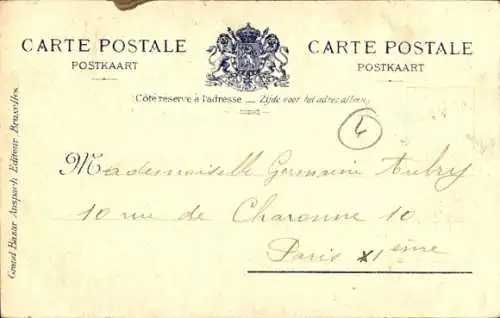 CARTE POSTALE
POSTKAART
CARTE POSTALE
POSTKAART
Côté réservé à l'adresse — Zijde voor het adres alleen
4
Mademoiselle Germaine Aubry
10 rue de Charonne 10
Paris XIème
Grand Bazar Anspach Editeur Bruxelles.